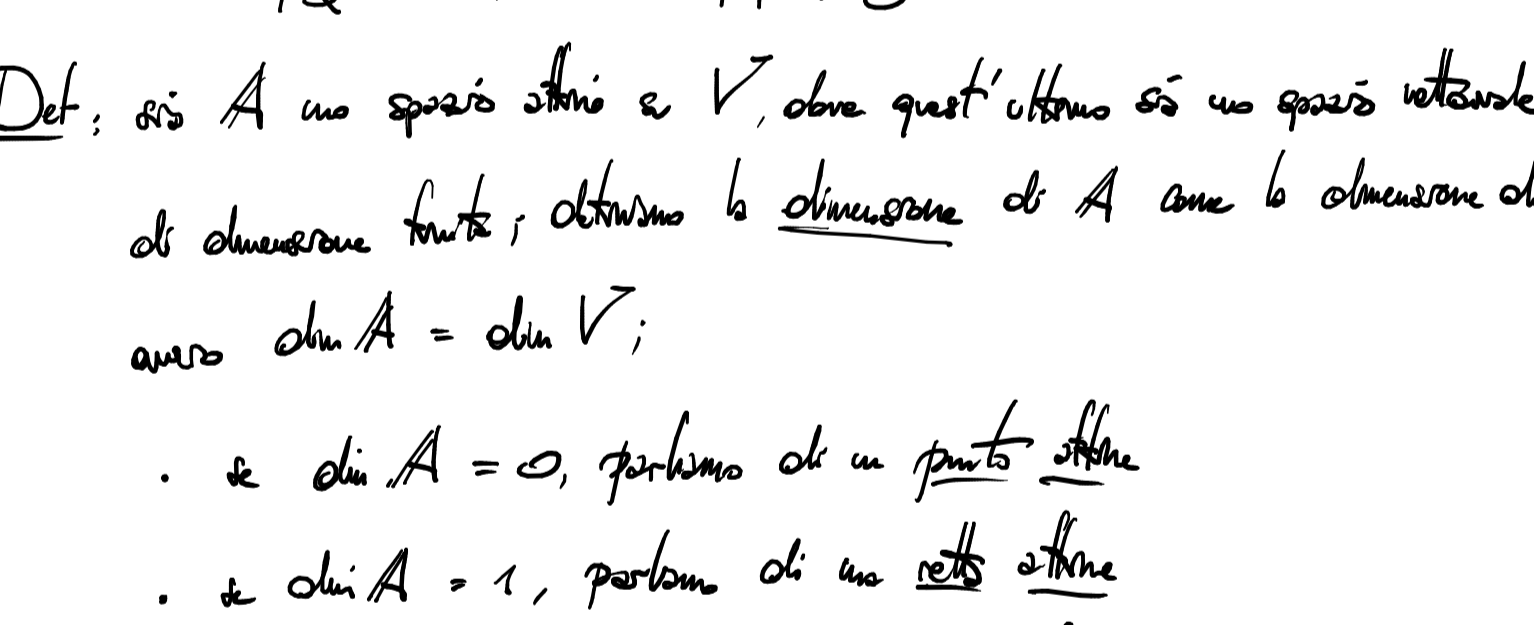 Def: sia A uno spazio affine su V, dove quest'ultimo sia uno spazio vettoriale
di dimensione finita; definiamo la dimensione di A come la dimensione d
ovvero dim A = dim V;
· se dim A = 0, parliamo di un punto affine
· se dim A = 1, parliamo di una retta affine